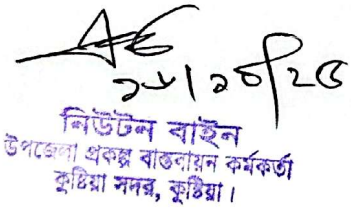 নিউটন বাইন
উপজেলা প্রকল্প বাস্তবায়ন কর্মকর্তা
কুষ্টিয়া সদর, কুষ্টিয়া।